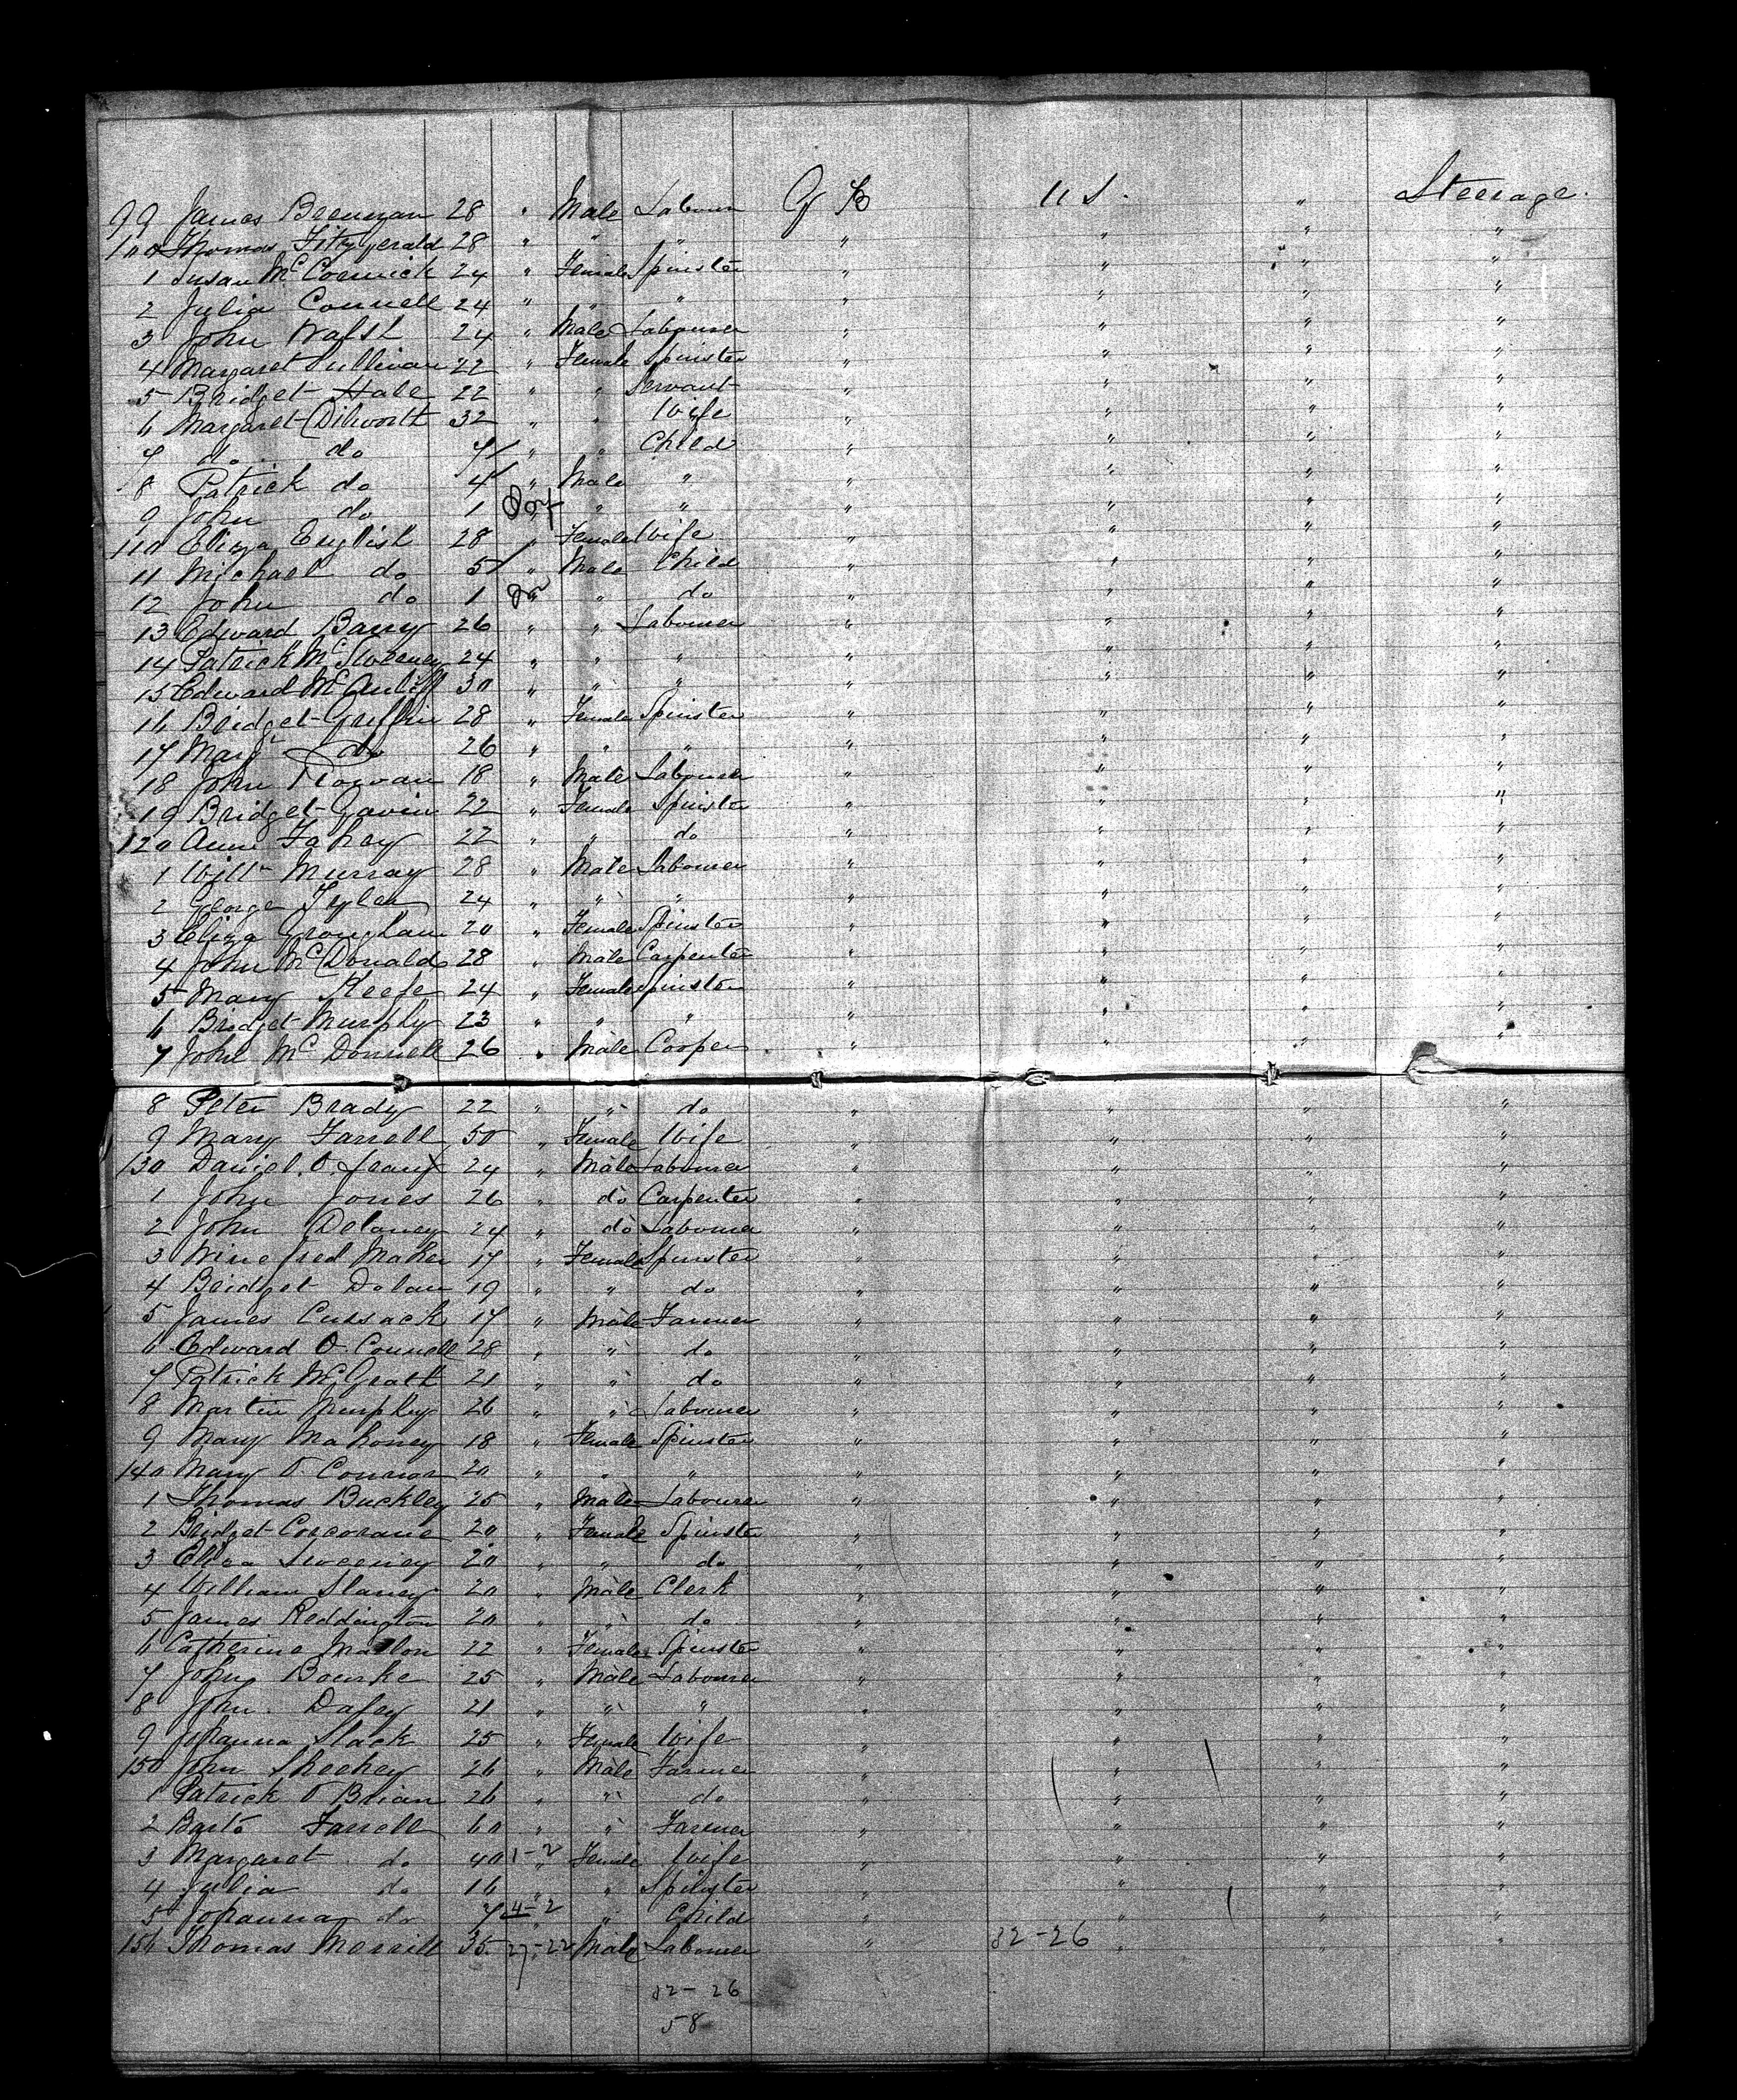 99 James Brennan 28 " Male Labourer G B U S. " Steerage.
100 Thomas Fitzgerald 28 " " " " " " "
1 Susan McCormick 24 " Female Spinster " " " "
2 Julia Connell 24 " " " " " " "
3 John Walsh 24 " Male Labourer " " " "
4 Margaret Sullivan 22 " Female Spinster " " " "
5 Bridget Hale 22 " " Servant " " " "
6 Margaret Dilworth 32 " " Wife " " " "
7 do do 7 " " Child " " " "
8 Patrick do 4 " Male " " " " "
9 John do 1 " " " " " " "
110 Eliza English 28 " Female Wife " " " "
11 Michael do 5 " Male Child " " " "
12 John do 1 " " do " " " "
13 Edward Barry 26 " " Labourer " " " "
14 Patrick McSweeney 24 " " " " " " "
15 Edward McAuliff 30 " " " " " " "
16 Bridget Griffin 28 " Female Spinster " " " "
17 Mary do 26 " " " " " " "
18 John 18 " Male Labourer " " " "
19 Bridget Gavin 22 " Female Spinster " " " "
120 Anne Fahey 22 " " do " " " "
1 Willm Murray 28 " Male Labourer " " " "
2 George 24 " " " " " " "
3 Eliza 20 " Female Spinster " " " "
4 John McDonald 28 " Male Carpenter " " " "
5 Mary Keefe 24 " Female Spinster " " " "
6 Bridget Murphy 23 " " " " " " "
7 John McDonnell 26 " Male Cooper " " " "
8 Peter Brady 22 " " do " " " "
9 Mary Farrell 50 " Female Wife " " " "
130 Daniel O. Leary 24 " Male Labourer " " " "
1 John Jones 26 " do Carpenter " " " "
2 John Delaney 24 " do Labourer " " " "
3 Winefred Maher 17 " Female Spinster " " " "
4 Bridget Dolan 19 " " do " " " "
5 James Cussack 17 " Male Farmer " " " "
6 Edward O. Connell 28 " " do " " " "
7 Patrick McGrath 21 " " do " " " "
8 Martin Murphy 26 " " Labourer " " " "
9 Mary Mahoney 18 " Female Spinster " " " "
140 Mary O Connor 20 " " " " " " "
1 Thomas Buckley 25 " Male Labourer " " " "
2 Bridget Corcorane 20 " Female Spinster " " " "
3 Ellen Sweeney 20 " " do " " " "
4 William Slaney 20 " Male Clerk " " " "
5 James Reddington 20 " " do " " " "
6 Catherine 22 " Female Spinster " " " "
7 John Bourke 25 " Male Labourer " " " "
8 John Dafey 21 " " " " " " "
9 Johanna Slack 25 " Female Wife " " " "
150 John Sheehey 26 " Male Farmer " " " "
1 Patrick O Brian 26 " " do " " " "
2 Barto Farrell 60 " " Farmer " " " "
3 Margaret do 40 1-2 " Female Wife " " " "
4 Julia do 16 " " Spinster " " " "
5 Johanna do 7 4-2 " " Child " " " "
156 Thomas Merrill 35 27-22 Male Labourer " 32-26 " " "
32-26
58